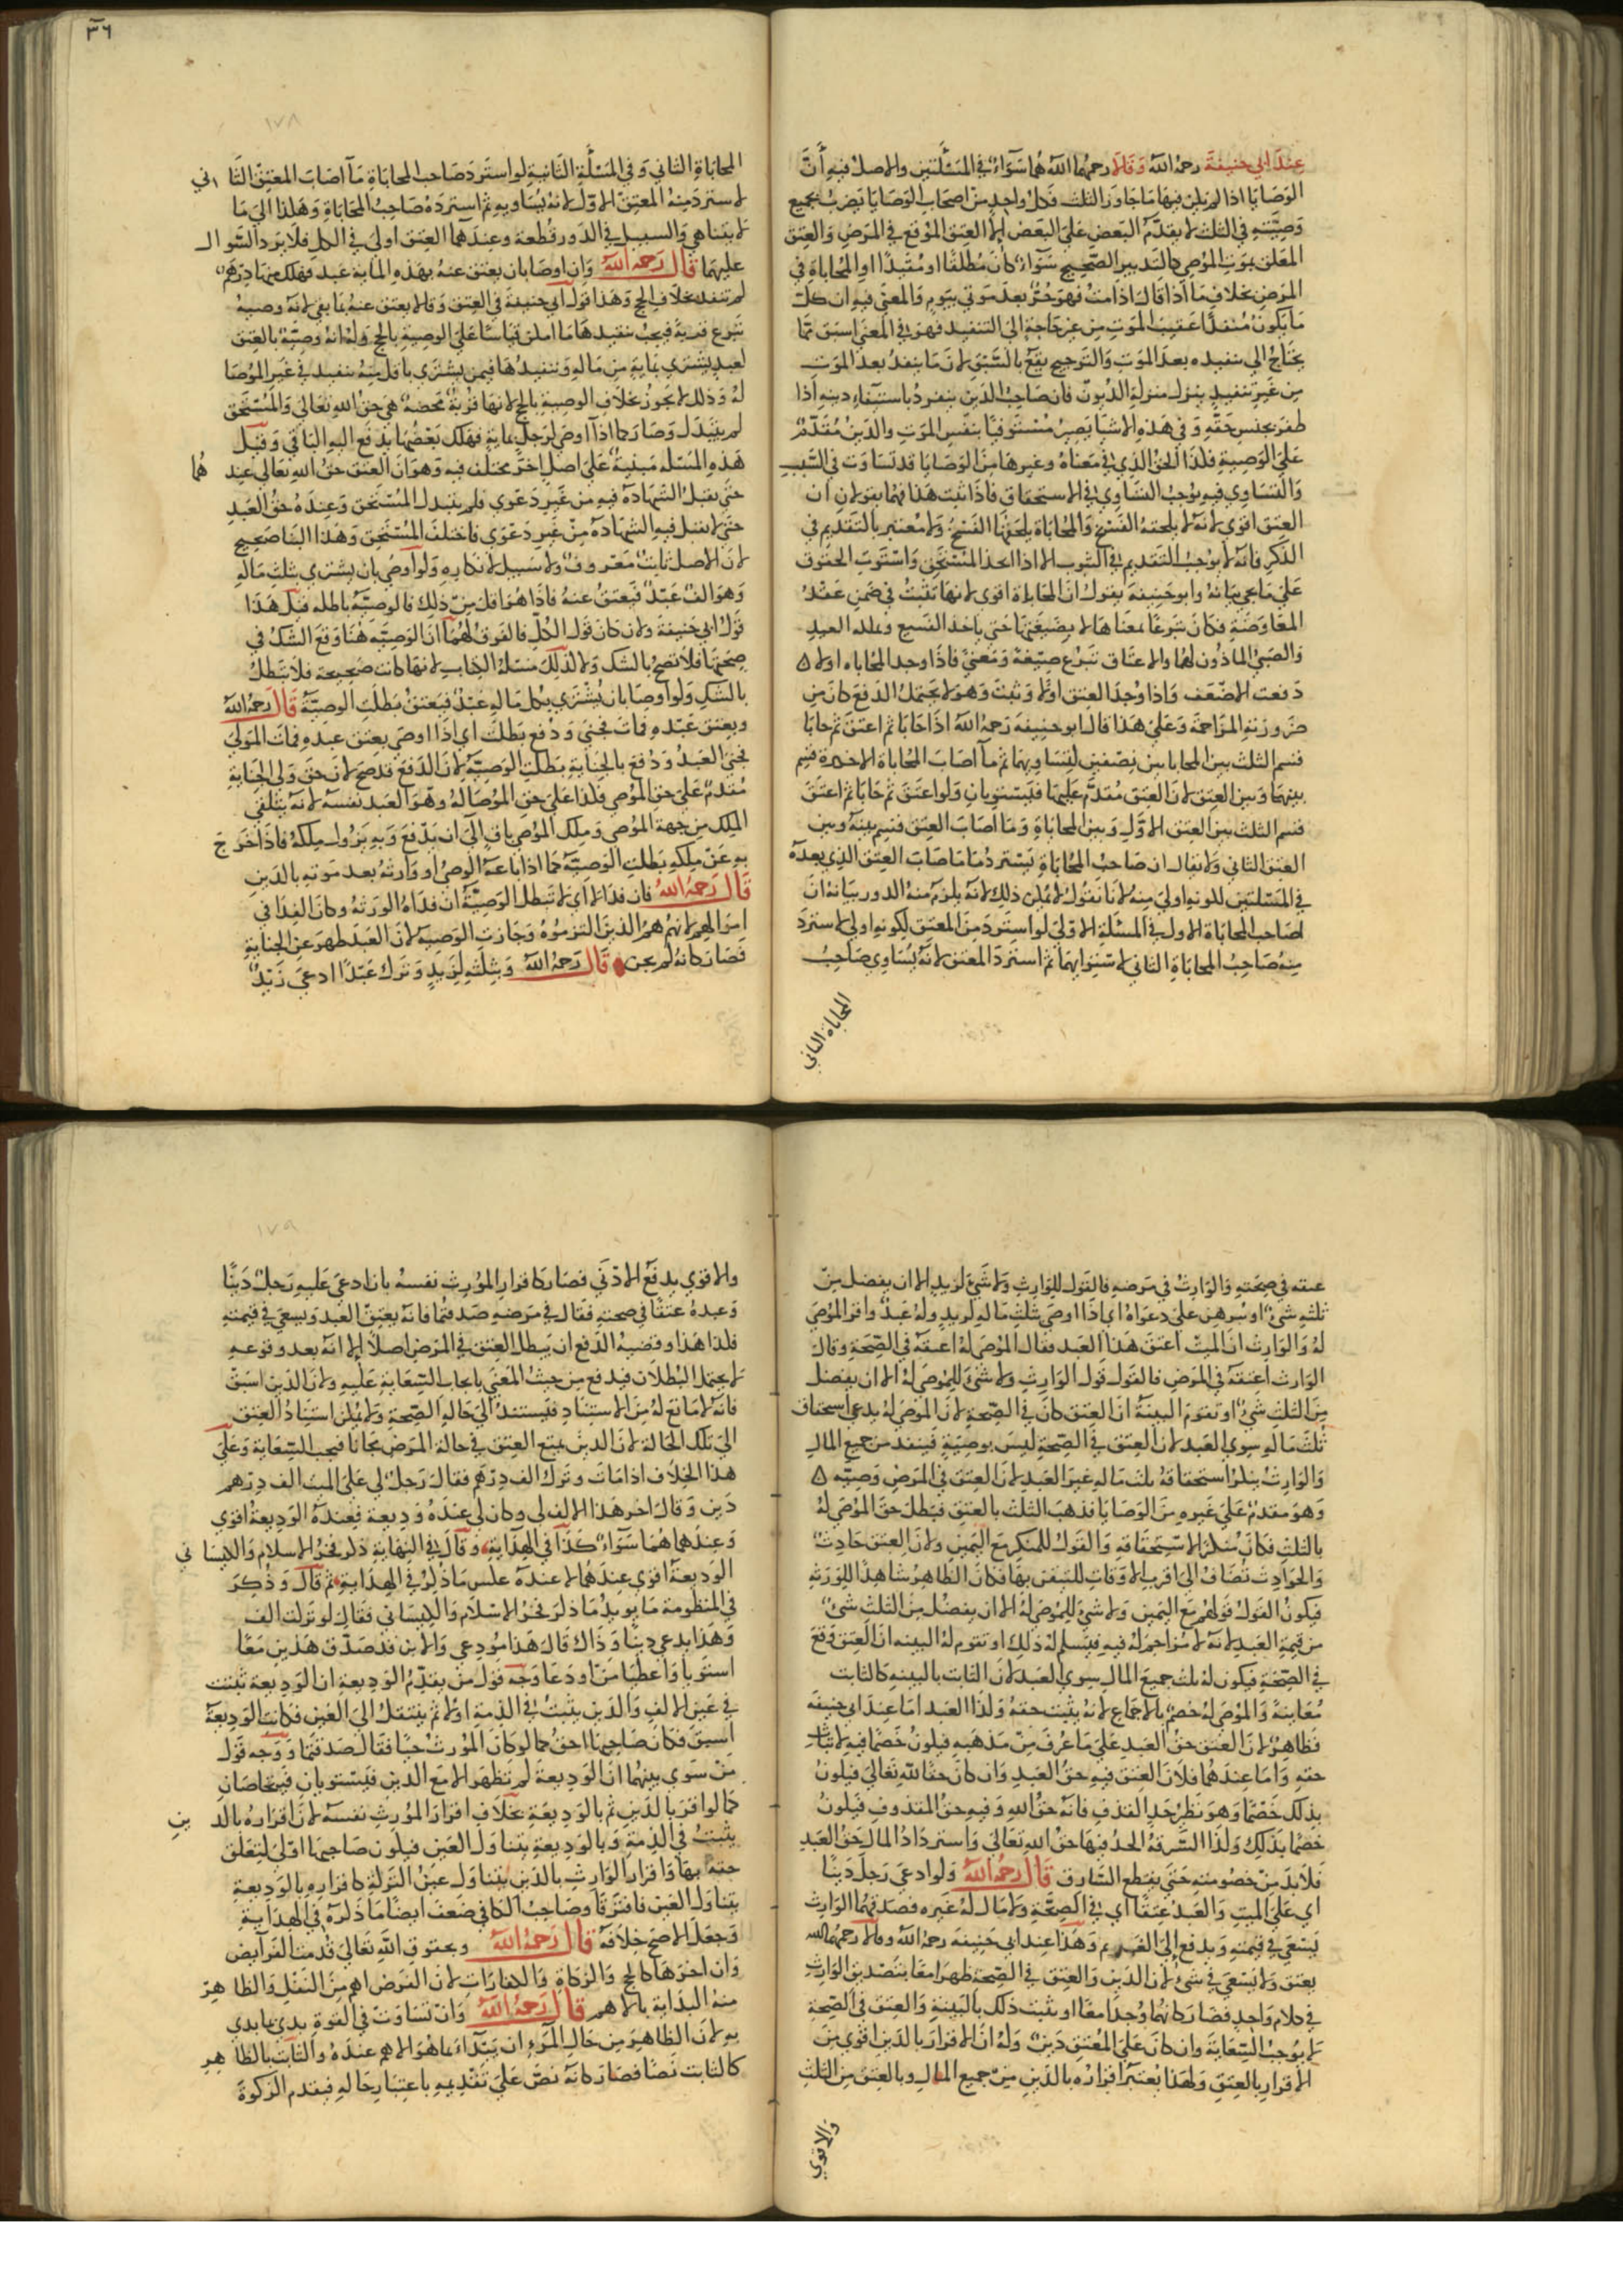 عند أبي حنيفة رحمه الله وقالا رحمهما الله هما سواء في المسألتين والاصل فيه أن
الوصايا اذا لم يكن فيها ما جاوز الثلث فكل واحد من اصحاب الوصايا يضرب بجميع
وصيته في الثلث لا يقدم البعض على البعض الا العتق الموقع في المرض والعتق
المعلق بموت الموصي كالتدبير الصحيح سواء كان مطلقا او مقيدا او المحاباة في
المرض بخلاف ما اذا قال اذا مت فهو حر بعد موتي بيوم والمعنى فيه ان كل
ما يكون منفذا عقيب الموت من غير حاجة الى التنفيذ فهو في المعنى اسبق مما
يحتاج الى تنفيذه بعد الموت والترجيح يقع بالسبق لان ما ينفذ بعد الموت
من غير تنفيذ ينزل منزلة الديون فان صاحب الدين ينفرد باستيفاء دينه اذا
ظفر بجنس حقه وفي هذه الاشيا يصير مستوفيا بنفس الموت والدين مقدم
على الوصية فكذا الحق الذي في معناه وغيرها من الوصايا قد تساوت في السبب
والتساوي فيه يوجب التساوي في الاستحقاق فاذا ثبت هذا فهما يقولان ان
العتق اقوى لانه لا يلحقه الفسخ والمحاباة يلحقها الفسخ ولا معتبر بالتقديم في
الذكر فانه لا يوجب التقديم في الثبوت الا اذا اتحد المستحق واستوت الحقوق
على ما يجي بيانه وابو حنيفة يقول ان المحاباة اقوى لانها تثبت في ضمن عقد
المعاوضة فكان تبرعا بمعناها لا بصيغتها حتى ياخذ الشفيع ويملكه العبد
والصبي الماذون لهما والاعتاق تبرع صيغة ومعنى فاذا وجد المحاباه اولا
دفعت الاضعف واذا وجد العتق اولا وثبت وهو لا يحتمل الدفع كان من
ضرورته المزاحمة وعلى هذا قال ابو حنيفة رحمه الله اذا حابا ثم اعتق ثم حابا
قسم الثلث بين المحاباتين نصفين لتساويهما ثم ما اصاب المحاباة الاخيرة قسم
بينها وبين العتق لان العتق مقدم عليها فيستويان ولو اعتق ثم حابا ثم اعتق
قسم الثلث بين العتق الاول وبين المحاباة وما اصاب العتق قسم بينه وبين
العتق الثاني ولا يقال ان صاحب المحاباة يسترد ما اصاب العتق الذي بعده
في المسئلتين لكونه اولى منه لانا نقول لا يمكن ذلك لانه يلزم منه الدور بيانه ان
صاحب المحاباة الاول في المسئلة الاولى لو استرد من المعتق لكونه اولى لاسترد
منه صاحب المحاباة الثاني لاستوايهما ثم استرد المعتق لانه يساوي صاحب
المحاباة الثاني
٣٦
١٧٨
المحاباة الثاني وفي المسألة الثانية لو استرد صاحب المحاباة ما اصاب المعتق الثاني
لاسترد منه المعتق الاول لانه يساويه ثم استرده صاحب المحاباة وهكذا الى ما
لا يتناهي والسبيل في الدور قطعه وعندهما العتق اولى في الكل فلا يرد السوال
عليهما قال رحمه الله وان اوصى بان يعتق عنه بهذه الماية عبد فهلك منها درهم
لم تنفذ بخلاف الحج وهذا قول ابي حنيفة في العتق وقالا يعتق عنه بما بقي لانه وصية
تبرع قربة فيجب تنفيذها ما امكن قياسا على الوصية بالحج وله انه وصية بالعتق
لعبد يشترى بماية من ماله وتنفيذها فيمن يشترى باقل منه تنفيذ في غير الموصا
له وذلك لا يجوز بخلاف الوصية بالحج لانها قربة محضة هي حق الله تعالى والمستحق
لم يتبدل وصار كما اذا اوصى لرجل بماية فهلك بعضها يدفع اليه الباقي وقيل
هذه المسئلة مبنية على اصل اخر مختلف فيه وهو ان العتق حق الله تعالى عندهما
حتى يقبل الشهادة فيه من غير دعوى فلم يتبدل المستحق وعنده حق العبد
حتى لا يقبل فيه الشهادة من غير دعوى فاختلف المستحق وهذا البنا صحيح
لان الاصل ثابت معروف ولا سبيل لانكاره ولو أوصى بان يشترى بثلث ماله
وهو الف عبد فيعتق عنه فاذا هو اقل من ذلك فالوصية باطله قيل هذا
قول ابي حنيفة ولان كان قول الكل فالفرق لهما ان الوصية هنا وقع الشك في
صحتها فلا تصح بالشك ولا كذلك مسئلة الكتاب لانها كانت صحيحة فلا تبطل
بالشك ولو اوصا بان يشترى بكل ماله عبد فيعتق بطلت الوصية قال رحمه الله
وبعتق عبده فمات فجنى ودفع بطلت اي اذا اوصى بعتق عبده فمات المولى
فجنى العبد ودفع بالجناية بطلت الوصية لان الدفع قد صح لان حق ولى الجناية
مقدم على حق الموصي فكذا على حق الموصا له وهو العبد نفسه لانه يتلقى
الملك من جهة الموصي وملك الموصي باق الى ان يدفع وبه يزول ملكه فاذا خرج
به عن ملكه بطلت الوصية كما اذا باعه الوصي او وارثه بعد موته بالدين
قال رحمه الله فان فدا لا أي لا تبطل الوصية ان فداه الورثة وكان الفدا في
اموالهم لانهم هم الذين التزموه وجازت الوصية لان العبد طهر عن الجناية
فصار كانه لم يجن قال رحمه الله وبثلثه لزيد وترك عبدا ادعى زيد
عتقه في صحته والوارث في مرضه فالقول للوارث ولا شي لزيد الا ان يفضل من
ثلثه شي او يبرهن على دعواه اي اذا اوصى بثلث ماله لزيد وله عبد واقر الموصى
له والوارث ان الميت اعتق هذا العبد فقال الموصى له اعتقه في الصحة وقال
الوارث أعتقه في المرض فالقول قول الوارث ولا شي للموصى له الا ان يفضل
من الثلث شي او تقوم البينة ان العتق كان في الصحة لان الموصى له يدعي استحقاق
ثلث ماله سوى العبد لان العتق في الصحة ليس بوصية فينفذ من جميع المال
والوارث ينكر استحقاقه ثلث ماله غير العبد لان العتق في المرض وصية
وهو مقدم على غيره من الوصايا فذهب الثلث بالعتق فبطل حق الموصى له
بالثلث فكان منكرا لاستحقاقه والقول للمنكر مع اليمين ولان العتق حادث
والحوادث تضاف الى اقرب الاوقات للتيقن بها فكان الظاهر شاهدا للورثه
فيكون القول قولهم مع اليمين ولا شي للموصى له الا ان يفضل من الثلث شي
من قيمة العبد لانه لا مزاحم له فيه فيسلم له ذلك او تقوم له البينه ان العتق وقع
في الصحة فيكون له ثلث جميع المال سوى العبد لان الثابت بالبينه كالثابت
معاينة والموصى له خصم بالاجماع لانه يثبت حقه وكذا العبد اما عند ابي حنيفة
فظاهر لان العتق حق العبد على ما عرف من مذهبه فيكون خصما فيه لاثبات
حقه واما عندهما فلان العتق فيه حق العبد وان كان حقا لله تعالى فيكون
بذلك خصما وهو نظير حد القذف فانه حق الله وفيه حق المقذوف فيكون
خصما بذلك وكذا السرقة الحد فيها حق الله تعالى واسترداد المال حق العبد
فلا بد من خصومته حتى يقطع السارق قال رحمه الله ولو ادعى رجل دينا
اي على الميت والعبد عتقا اي في الصحة ولا مال له غيره فصدقهما الوارث
يسعى في قيمته ويدفع إلى الغريم وهذا عند ابي حنيفة رحمه الله وقالا رحمهما الله
يعتق ولا يسعى في شي لان الدين والعتق في الصحة ظهرا معا بتصديق الوارث
في كلام واحد فصار كانهما وجدا معا او يثبت ذلك بالبينة والعتق في الصحة
لا يوجب السعاية وان كان على المعتق دين وله ان الاقرار بالدين اقوى من
الاقرار بالعتق ولهذا يعتبر اقراره بالدين من جميع المال وبالعتق من الثلث
والاقوى
١٧٩
والاقوى يدفع الادنى فصار كاقرار المورث نفسه بان ادعى عليه رجل دينا
وعبده عتقا في صحته فقال في مرضه صدقتما فانه يعتق العبد ويسعى في قيمته
فكذا هذا وقضية الدفع ان يبطل العتق في المرض اصلا إلا انه بعد وقوعه
لا يحتمل البطلان فيدفع من حيث المعنى بايجاب السعاية عليه ولان الدين اسبق
فانه لا مانع له من الاستناد فيستند الى حالة الصحة ولا يمكن استناد العتق
الى تلك الحالة لان الدين يمنع العتق في حالة المرض مجانا فيجب السعاية وعلى
هذا الخلاف اذا مات وترك الف درهم فقال رجل لي على الميت الف درهم
دين وقال اخر هذا الالف لي وكان لي عنده وديعة فعنده الوديعة اقوى
وعندهما هما سواء كذا في الهداية وقال في النهاية ذكر فخر الاسلام والكيساني
الوديعة اقوى عندهما لا عنده عكس ما ذكر في الهداية ثم قال وذكر
في المنظومة ما يويد ما ذكر فخر الاسلام والكيساني فقال لو ترك الف
وهذا يدعي دينا وذاك قال هذا مودعي والابن قد صدق هذين معا
استويا وأعطيا من اودعا وجه قول من يقدم الوديعة ان الوديعة تثبت
في عين الالف والدين يثبت في الذمة اولا ثم ينتقل الى العين فكانت الوديعة
اسبق فكان صاحبها احق كما لو كان المورث حيا فقال صدقتما ووجه قول
من سوى بينهما ان الوديعة لم تظهر الا مع الدين فيستويان فيتحاصان
كما لو اقر بالدين ثم بالوديعة بخلاف اقرار المورث نفسه لان اقراره بالدين
يثبت في الذمة وبالوديعة يتناول العين فيكون صاحبها اولى لتعلق
حقه بها واقرار الوارث بالدين يتناول عين التركة كاقراره بالوديعة
يتناول العين فافترقا وصاحب الكافي ضعف ايضا ما ذكره في الهداية
وجعل الاصح خلافه قال رحمه الله وبحقوق الله تعالى قدمت الفرائض
وان اخرها كالحج والزكاة والكفارات لان الفرض اهم من النفل والظاهر
منه البداية بالاهم قال رحمه الله وان تساوت في القوة بدي بما بدي
به لان الظاهر من حال المرء ان يبتداء بما هو الاهم عنده والثابت بالظاهر
كالثابت نصا فصار كانه نص على تقديمه باعتبار حاله فيقدم الزكوة